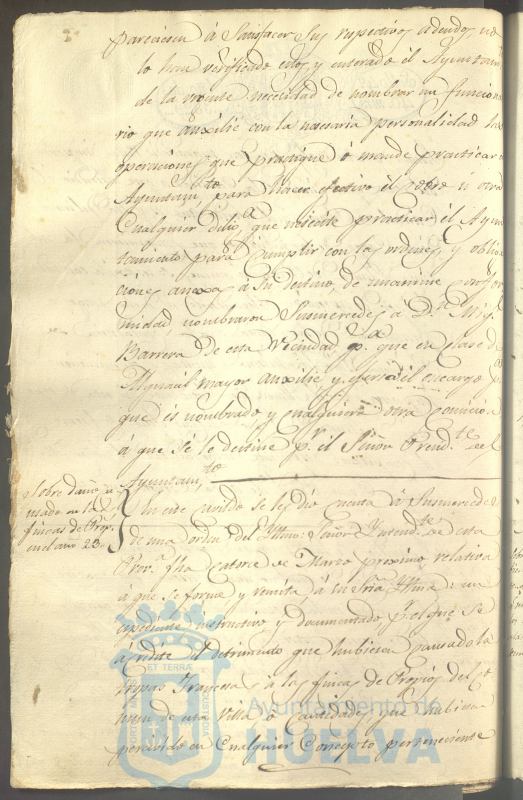 parecieron á Satisfacer Sus respectivos adeudos, no
lo han verificado estos, y enterado el Ayuntam
de la urgente necesidad de nombrar un funciona
rio que auxilie con la necesaria personalidad las
operaciones que practique ó mande practicar
Ayuntamto para hacer efectivo el cobro ú otra
Cualquier dilig.a que necesite practicar el Ayun
tamiento para cumplir con las ordenes y obliga
ciones anexas á su Destino, de unanime confor
midad nombraron Susmercedes á D.n Mig.l
Barrera de esta Vecindad p.a que en clase de
Alguacil mayor auxilie y ejerza el encargo p.a
que es nombrado y cualquiera otra comision
á que se le destine p.r el Señor Presid.te de el
Ayuntam.to
Sobre daños ca
usados en las
fincas de Prop.s
en el año 23.
En este cavildo se les dió cuenta á Susmercedes
de una orden del Yltmo. Señor Yntend.te de esta
Prov.a fha catorce de Marzo proximo relativa
á que se forme y remita á su Sria. Yltma. un
espediente instructivo y documentado p.r el que se
acredite el detrimento que hubieren causado las
tropas Francesas á las fincas de Propios del Co
mun de esta villa ó Cantidades que hubieran
percivido en Cualquier Concepto perteneciente
PORTUS MARIS ET TERRÆ CUSTODIA
Ayuntamiento de
HUELVA